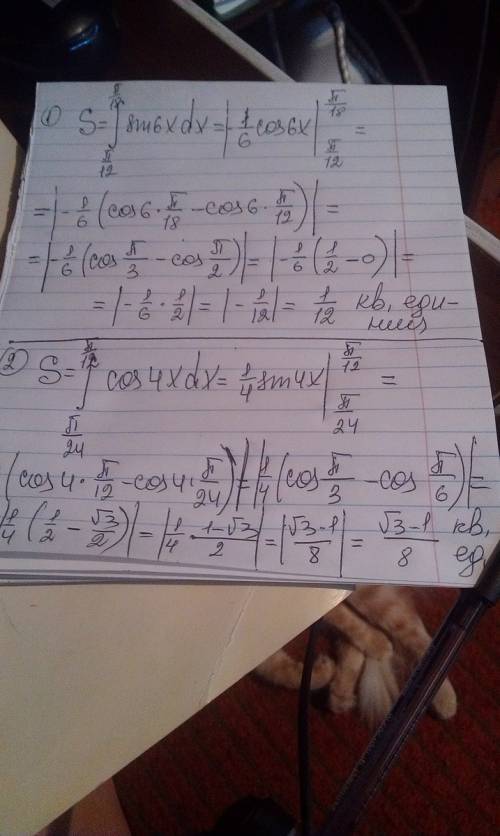 1) S = ∫_{π/12}^{π/18} sin6xdx = |-1/6 cos6x|_{π/12}^{π/18} =
= |-1/6 (cos6·π/18 - cos6·π/12)| =
= |-1/6 (cos π/3 - cos π/2)| = |-1/6 (1/2 - 0)| =
= |-1/6 · 1/2| = |-1/12| = 1/12 кв, еди-
ниц
2) S = ∫_{π/24}^{π/12} cos4xdx = 1/4 sin4x|_{π/24}^{π/12} =
(cos4·π/12 - cos4·π/24)| = |1/4 (cos π/3 - cos π/6)| =
|1/4 (1/2 - √3/2)| = |1/4 · (1-√3)/2| = |(√3-1)/8| = (√3-1)/8 кв,
ед,